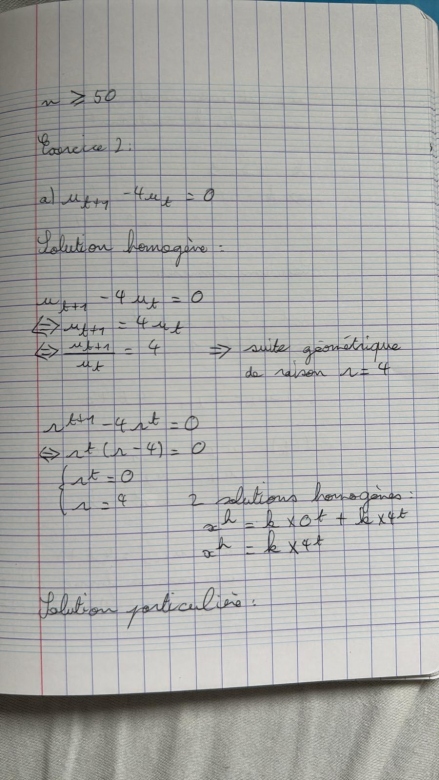 n ⩾ 50
Exercice 2.
a) u_{t+1} - 4u_t = 0
Solution homogène :
u_{t+1} - 4 u_t = 0
⇔ u_{t+1} = 4 u_t
⇔ u_{t+1}/u_t = 4 ⇒ suite géométrique
de raison r = 4
r^{t+1} - 4 r^t = 0
⇔ r^t (r - 4) = 0
{ r^t = 0
r = 4 2 solutions homogènes :
x^h = k × 0^t + k × 4^t
x^h = k × 4^t
Solution particulière :